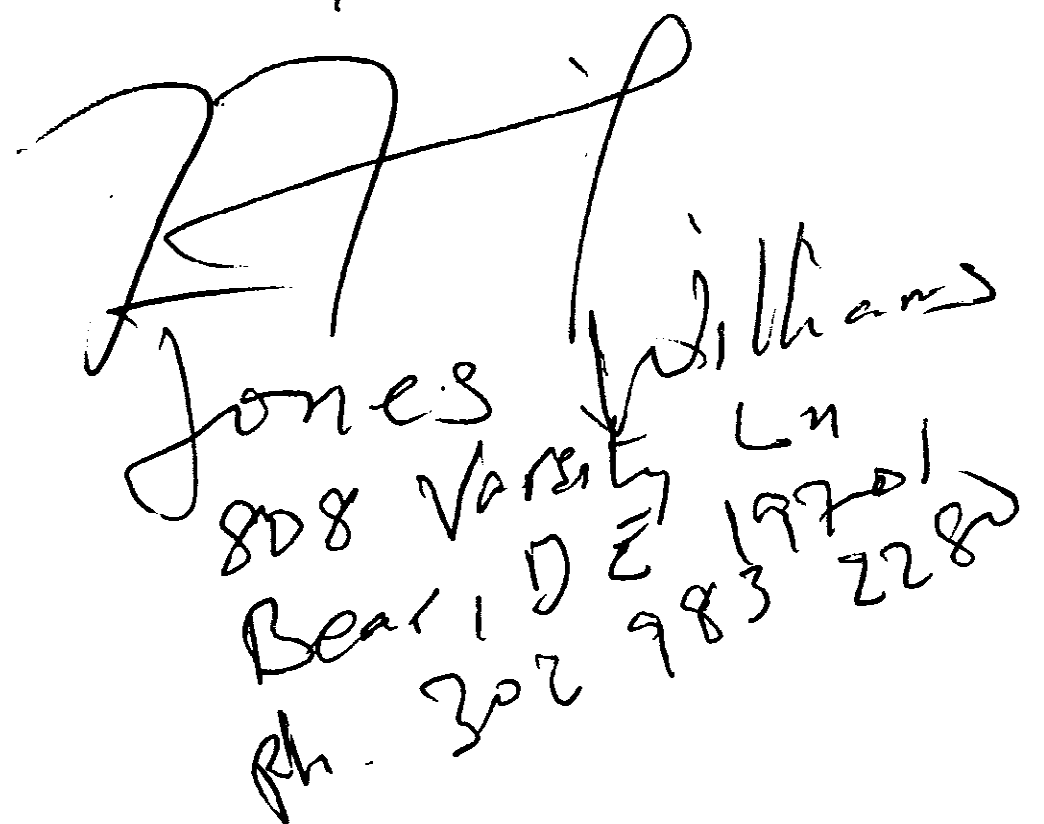 Jones Williams
808 Varsity Ln
Bear, DE 19701
ph. 302 983 2280